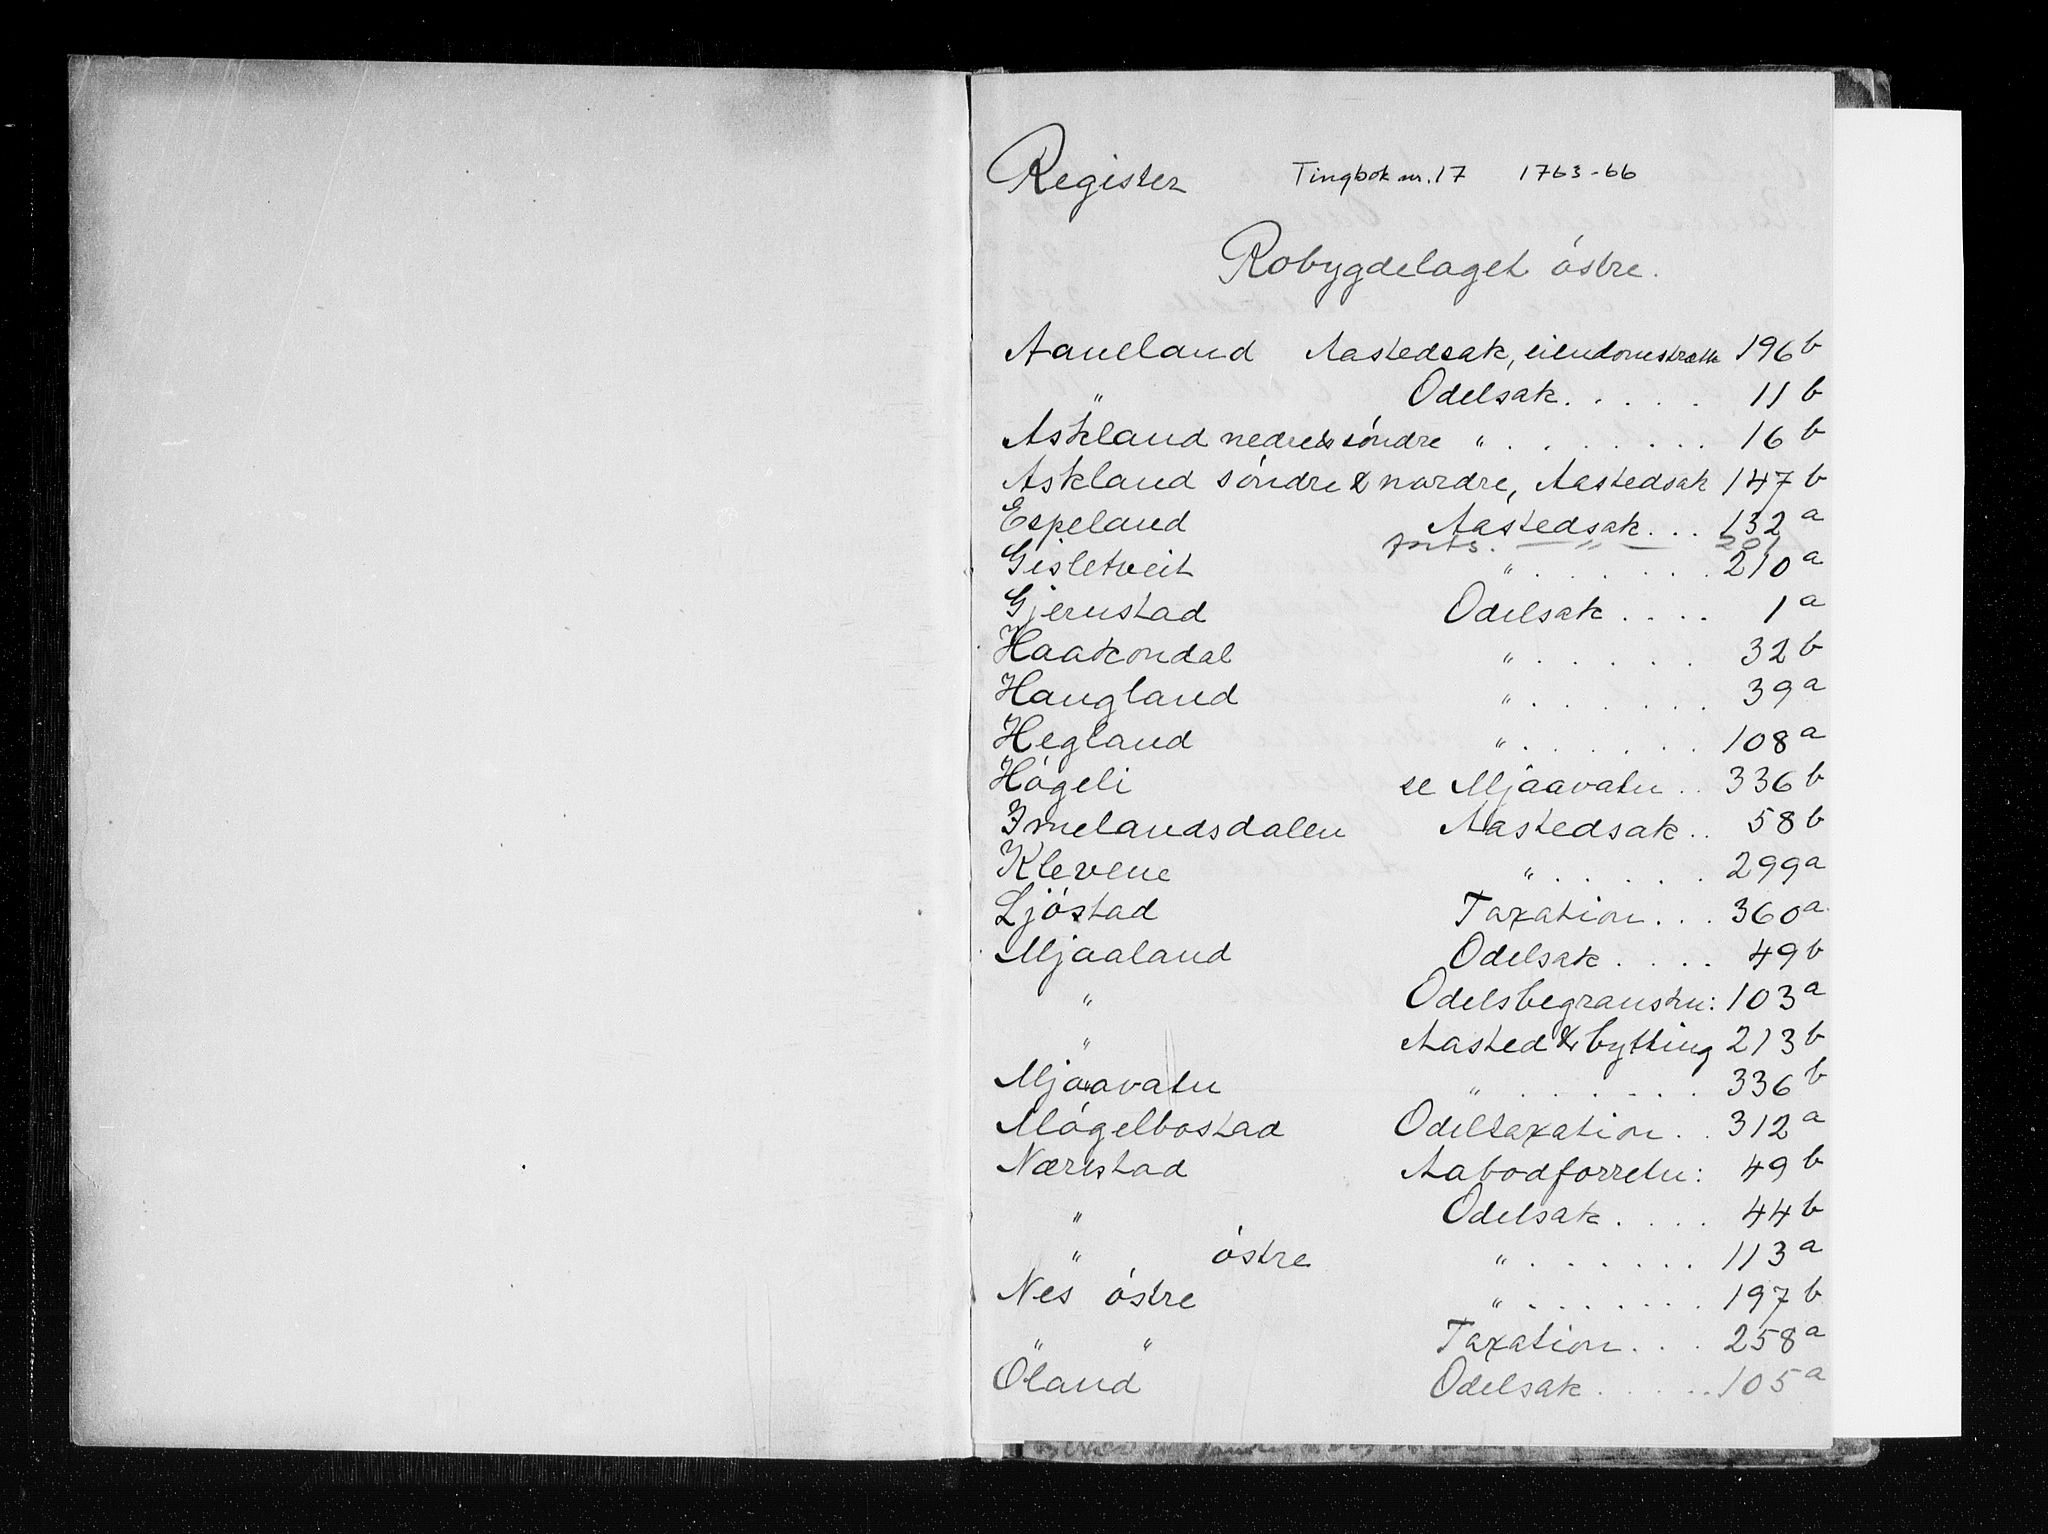 Register Tingbok nr. 17 1763-66
Robygdelaget østre.
Aaneland Aastedsak, eiendomstrætte 196 b
" Odelsak. . . . . 11 b
Askland nedre & søndre " . . . . . . . . 16 b
Askland søndre & nordre, Aastedsak 147 b
Espeland Aastedsak. . . 132 a
forts. — " — 201
Gisletveit " . . . . . . . 210 a
Gjerustad Odelsak . . . . 1 a
Haakondal " . . . . . . 32 b
Haugland " . . . . . . . 39 a
Hegland " . . . . . . . 108 a
Høgeli se Mjaavatn . . 336 b
Imelandsdalen Aastedsak . . 58 b
Klevene " . . . . . . 299 a
Ljøstad Taxation . . . 360 a
Mjaaland Odelsak . . . . 49 b
" Odelsbegranstn: 103 a
" Aasted & bytting 213 b
Mjaavatn " . . . . . . . 336 b
Møgelbostad Odeltaxation . . 312 a
Nærestad Aabodforretn: 49 b
" Odelsak . . . . 44 b
" østre " . . . . . . . 113 a
Nes østre " . . . . . . . . 197 b
" " Taxation . . . 258 a
Øland Odelsak . . . . . 105 a